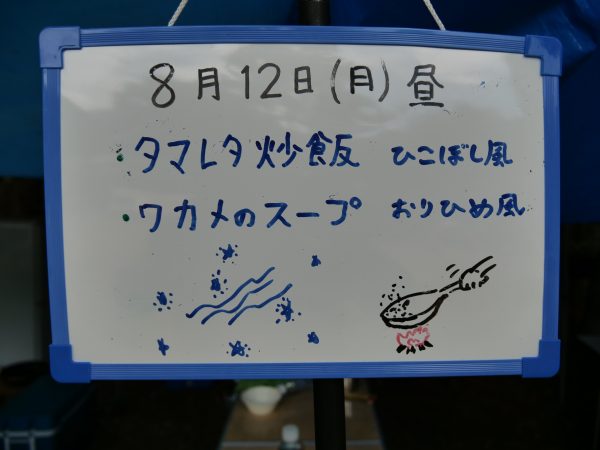 8月12日(月)昼
・タマレタ炒飯 ひこぼし風
・ワカメのスープ おりひめ風